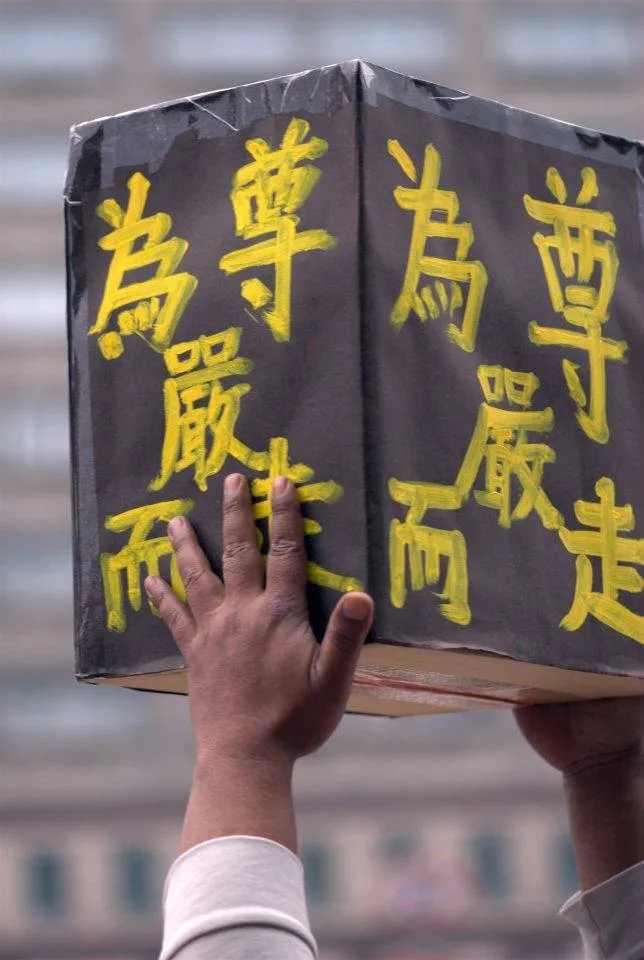 為尊
嚴
而走
為尊
嚴
而走